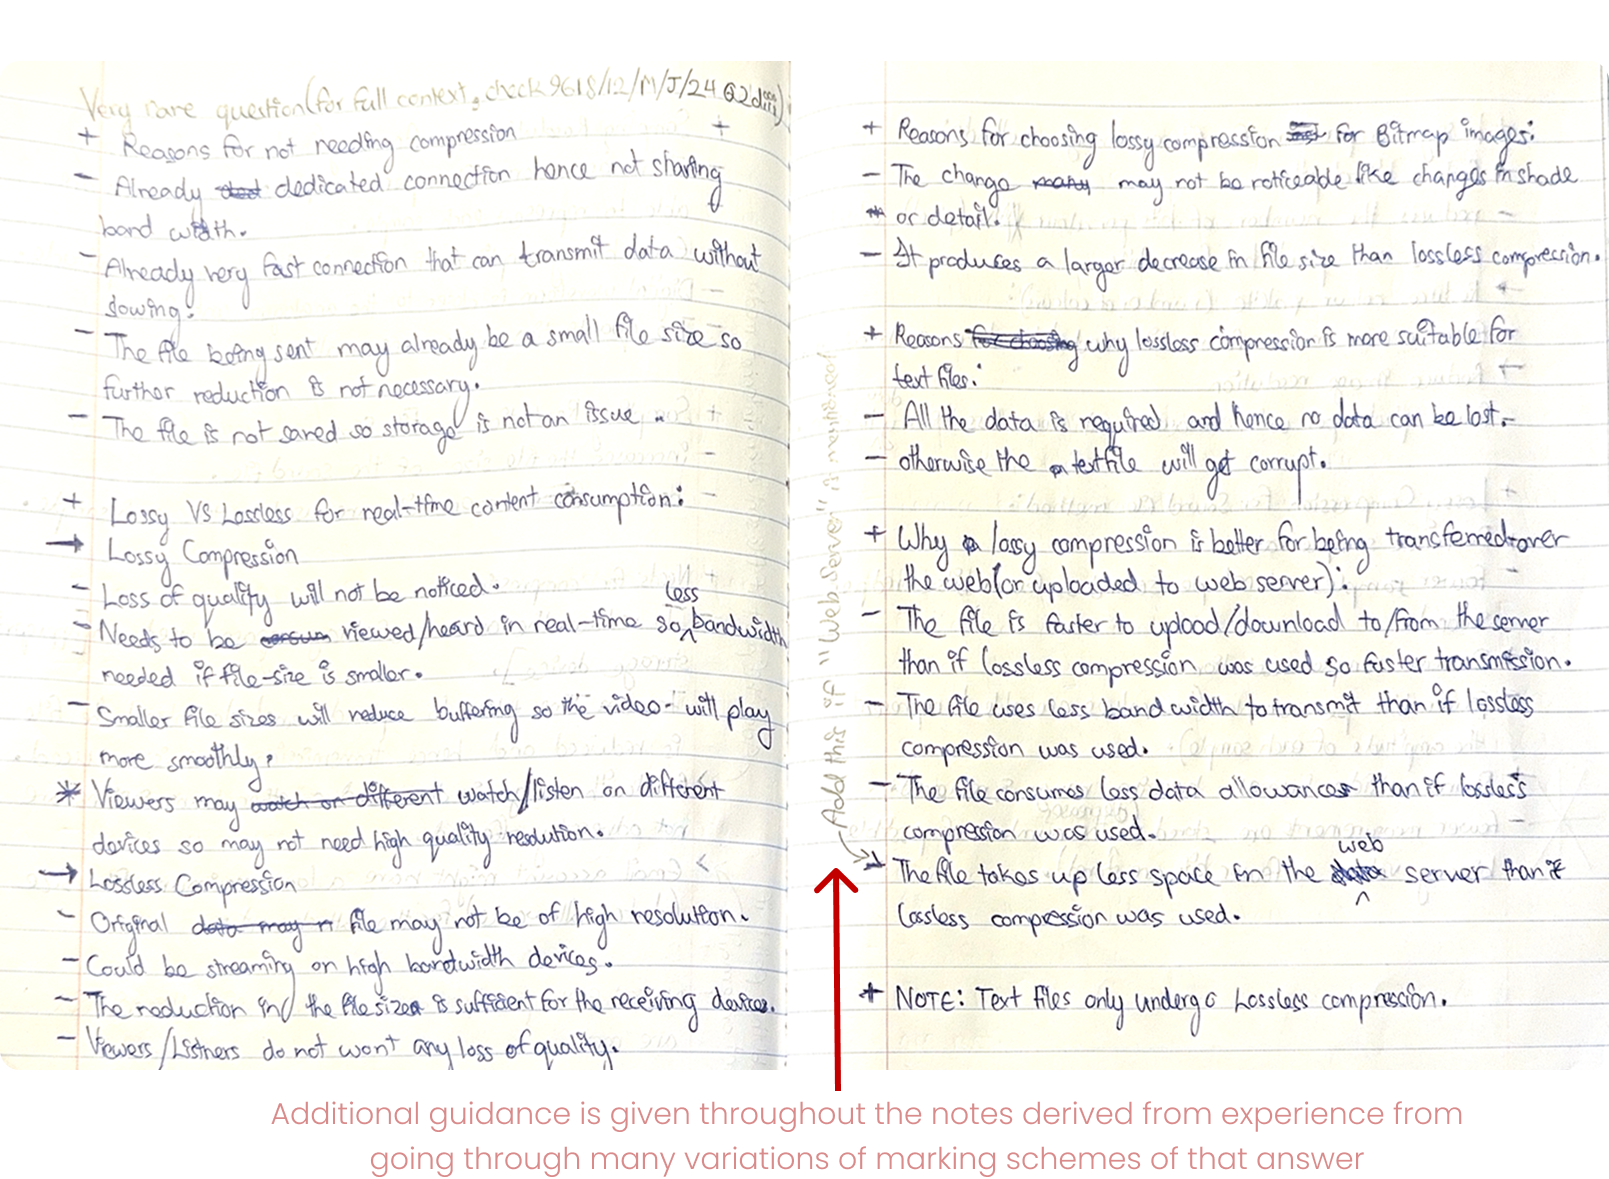 Very rare question (for full context, check 9618/12/M/J/24 Q2diii)
+ Reasons for not needing compression +
- Already dedicated connection hence not sharing
band width.
- Already very fast connection that can transmit data without
slowing.
- The file being sent may already be a small file size so
further reduction is not necessary.
- The file is not saved so storage is not an issue.
+ Lossy VS Lossless for real-time content consumption:
→ Lossy Compression
- Loss of quality will not be noticed.
- Needs to be viewed/heard in real-time so less bandwidth
needed if file-size is smaller.
- Smaller file sizes will reduce buffering so the video- will play
more smoothly.
* Viewers may watch on different watch/listen on different
devices so may not need high quality resolution.
→ Lossless Compression
- Original data may n file may not be of high resolution.
- Could be streaming on high bandwidth devices.
- The reduction in the file size is sufficient for the receiving devices.
- Viewers/Listners do not want any loss of quality.
+ Reasons for choosing lossy compression for Bitmap images:
- The change many may not be noticeable like changes in shade
or detail.
- It produces a larger decrease in file size than lossless compression.
+ Reasons for choosing why lossless compression is more suitable for
text files:
- All the data is required and hence no data can be lost.
- otherwise the textfile will get corrupt.
+ Why lossy compression is better for being transferred over
the web (or uploaded to web server):
- The file is faster to upload/download to/from the server
than if lossless compression was used so faster transmission.
- The file uses less band width to transmit than if lossless
compression was used.
- The file consumes less data allowances than if lossless
compression was used.
Add this if "Web Server" is mentioned
The file takes up less space in the data web server than if
lossless compression was used.
+ NOTE: Text files only undergo Lossless compression.
Additional guidance is given throughout the notes derived from experience from
going through many variations of marking schemes of that answer